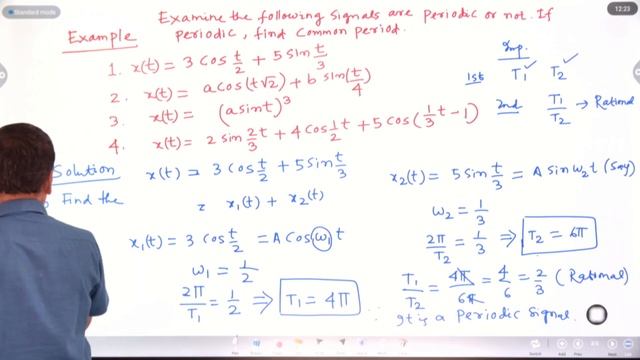 Standard mode
12:23
Example
Examine the following Signals are periodic or not. If
periodic, find common period.
1. x(t) = 3 cos t/2 + 5 sin t/3
2. x(t) = a cos(t√2) + b sin(t/4)
3. x(t) = (a sint)³
4. x(t) = 2 sin 2/3 t + 4 cos 1/2 t + 5 cos(1/3 t - 1)
Imp.
1st T₁ ✓ T₂ ✓
2nd T₁/T₂ → Rational
Solution
Find the
x(t) = 3 cos t/2 + 5 sin t/3
= x₁(t) + x₂(t)
x₁(t) = 3 cos t/2 = A cos ω₁ t
ω₁ = 1/2
2π/T₁ = 1/2 ⇒ T₁ = 4π
x₂(t) = 5 sin t/3 = A sin ω₂ t (say)
ω₂ = 1/3
2π/T₂ = 1/3 ⇒ T₂ = 6π
T₁/T₂ = 4π/6π = 4/6 = 2/3 (Rational)
It is a Periodic Signal.